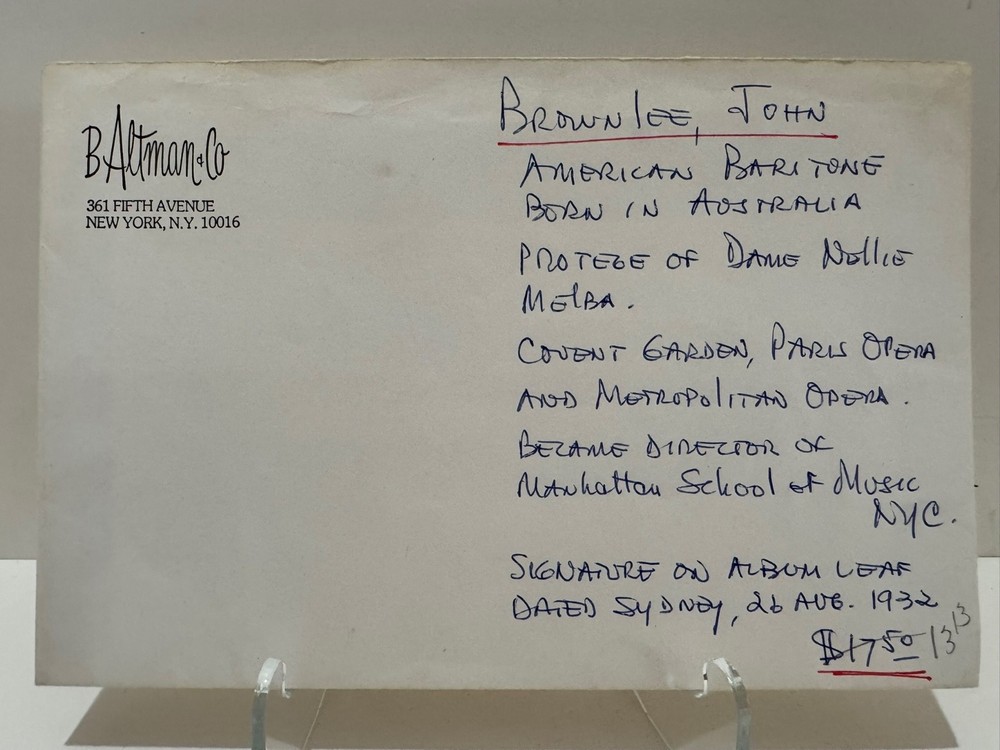 B Altman & Co
361 FIFTH AVENUE
NEW YORK, N.Y. 10016
BROWNLEE, JOHN
AMERICAN BARITONE
BORN IN AUSTRALIA
PROTEGE OF DAME NELLIE
MELBA.
COVENT GARDEN, PARIS OPERA
AND METROPOLITAN OPERA.
BECAME DIRECTOR OF
Manhattan School of Music
NYC.
SIGNATURE ON ALBUM LEAF
DATED SYDNEY, 26 AUG. 1932
$17.50 13 13